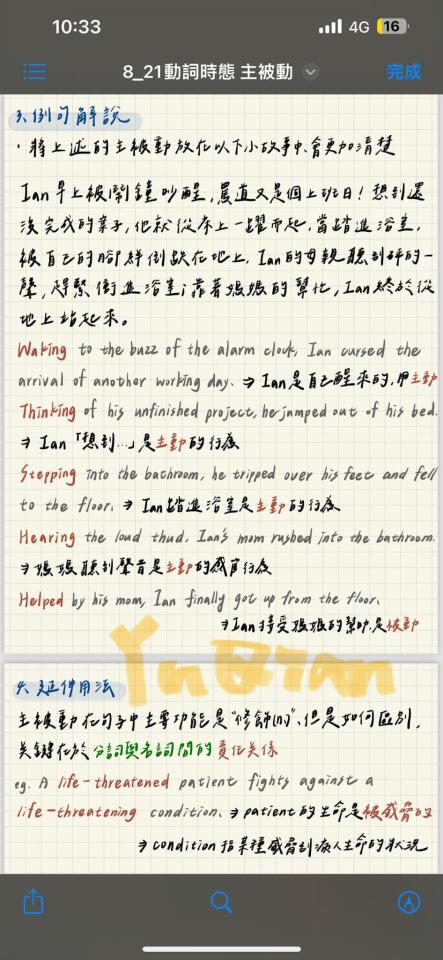 10:33 4G 16
8_21動詞時態 主被動 完成
3.例句解說
·將上述的主被動放在以下小故事中、會更加清楚
Ian早上被鬧鐘吵醒,罵道又是個上班日!想到還
沒完成的案子,他就從床上一躍而起.當踏進浴室,
被自己的腳絆倒跌在地上.Ian的母親聽到砰的一
聲,趕緊衝進浴室;靠著媽媽的幫忙,Ian終於從
地上站起來。
Waking to the buzz of the alarm clock, Ian cursed the
arrival of another working day. ⇒ Ian是自己醒來的,用主動
Thinking of his unfinished project, he jumped out of his bed.
⇒ Ian「想到...」是主動的行為
Stepping into the bathroom, he tripped over his feet and fell
to the floor. ⇒ Ian踏進浴室是主動的行為
Hearing the loud thud, Ian's mom rushed into the bathroom.
⇒媽媽聽到聲音是主動的感官行為
Helped by his mom, Ian finally got up from the floor.
⇒Ian接受媽媽的幫助是被動
4.延伸用法
主被動在句子中主要功能是"修飾(n)",但是如何區別,
關鍵在於分詞與名詞間的責任關係
eg. A life-threatened patient fights against a
life-threatening condition. ⇒ patient的生命是被威脅的
⇒ condition指某種威脅到病人生命的狀況